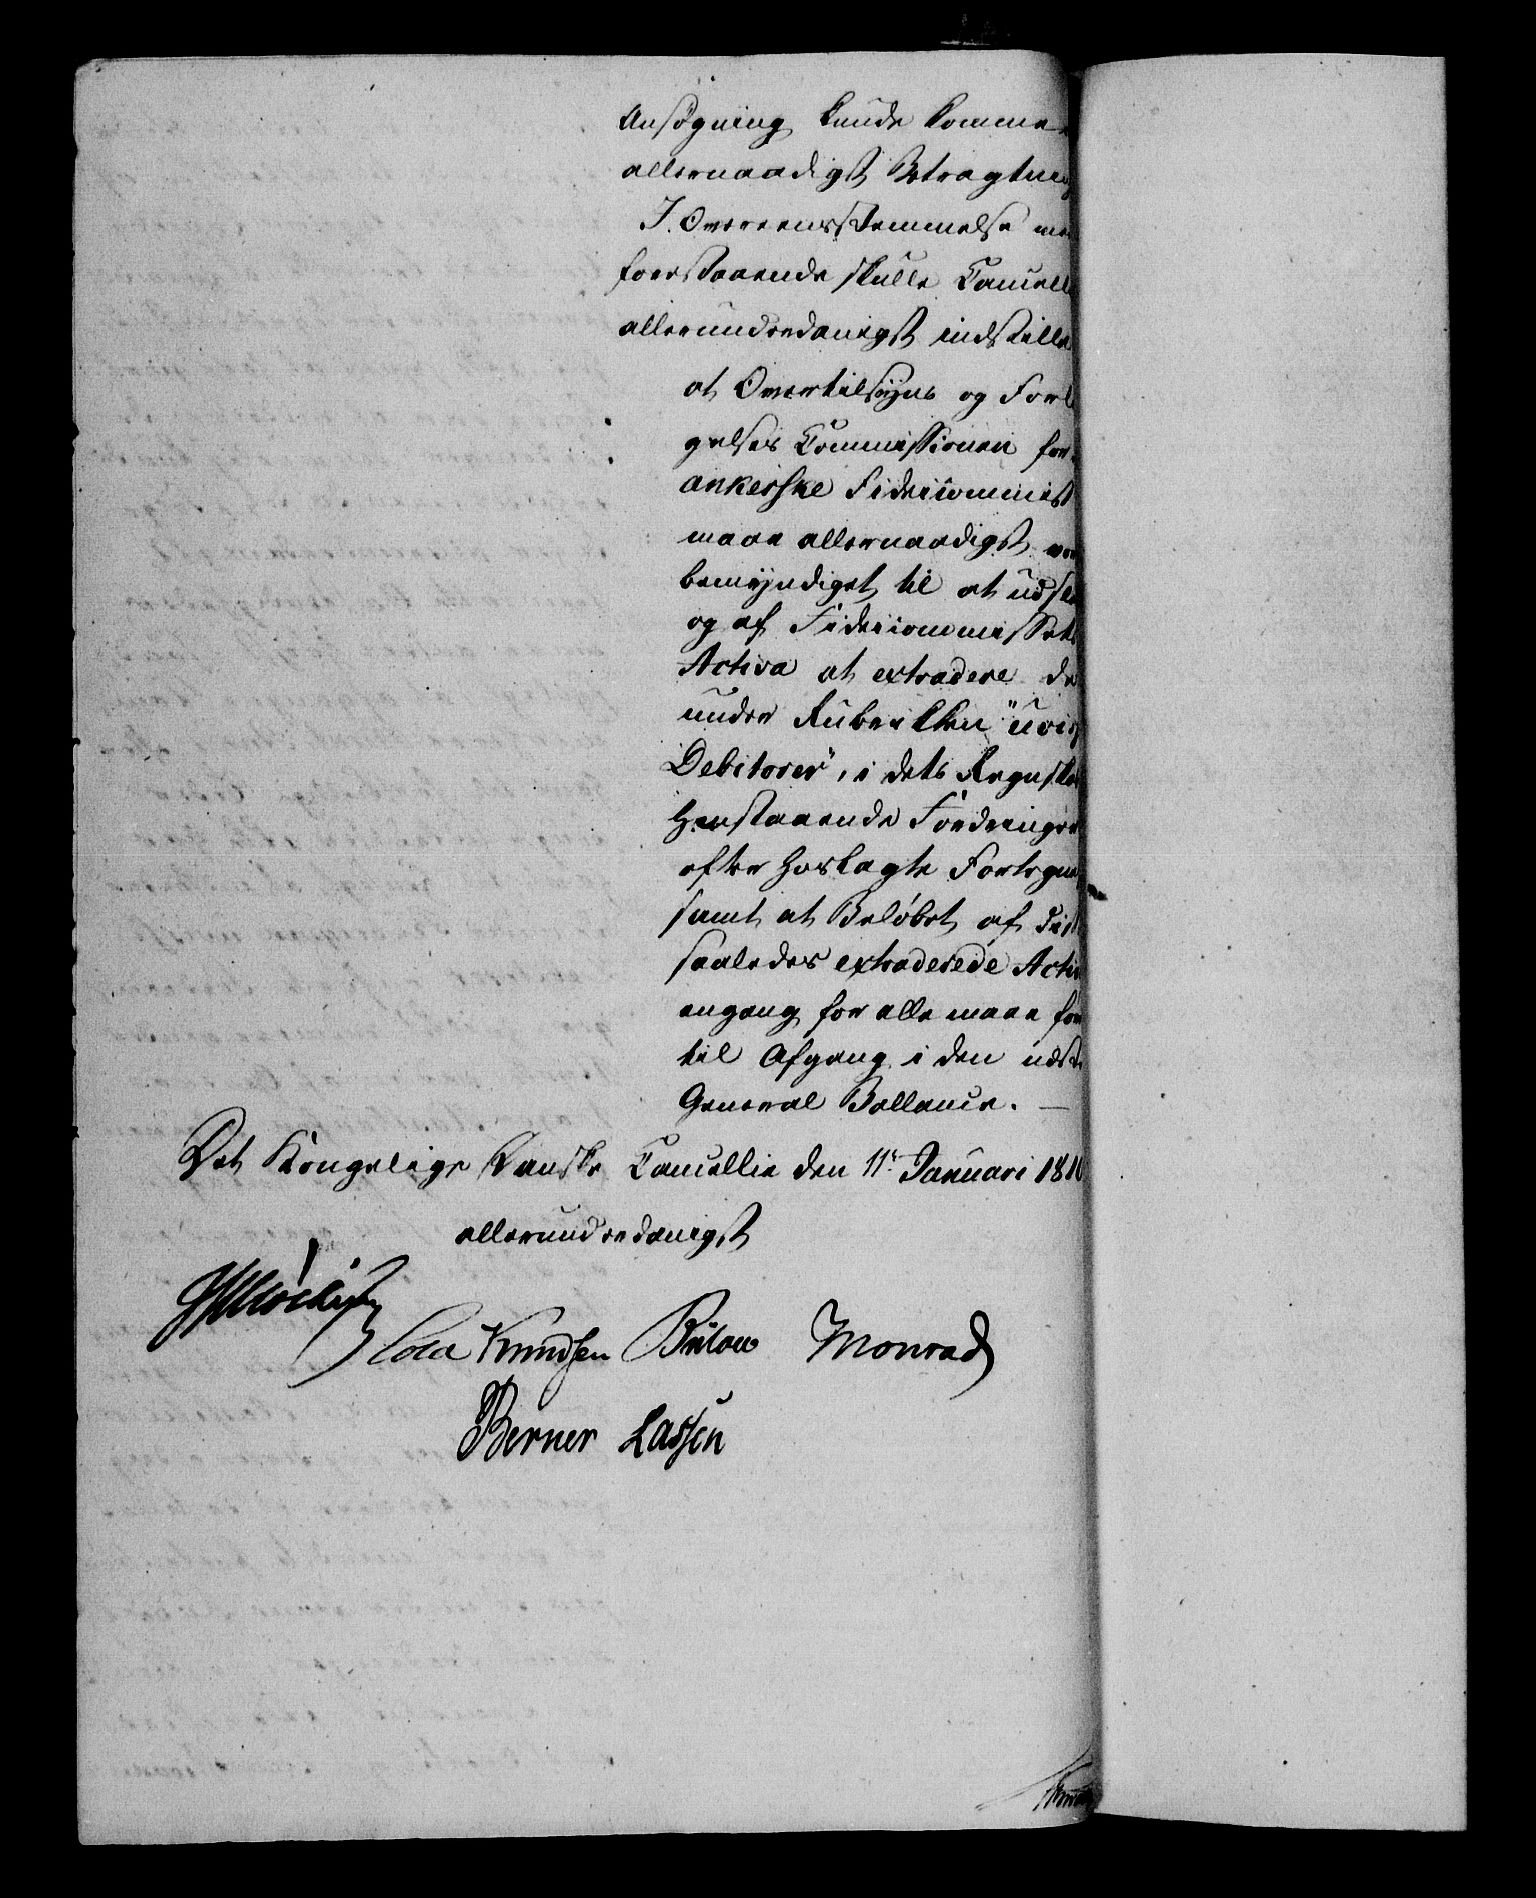 Ansøgning kunde komme
allernaadigst Betragtning
I Overeensstemmelse med
foerstaaende skulle Cancell
allerunderdanigst indstille
at Overtilsyns og Forl
gelses Commissionen for
ankerske Fideicommis
maae allernaadigst
bemyndiget til at udsl
og af Fideicommissets
Activa at extradere de
under Rubrikken "uvis
Debitorer", i dets Regnska
henstaaende Fordringer
efter hoslagte Fortegn
samt at Beløbet af
saaledes extraderede Activ
engang for alle maae før
til Afgang i den
General Ballance. —
Det Kongelige Danske Cancellie den 11te Januari 181
allerunderdanigst
Cold Knudsen Bülow Monrad
Berner Lassen